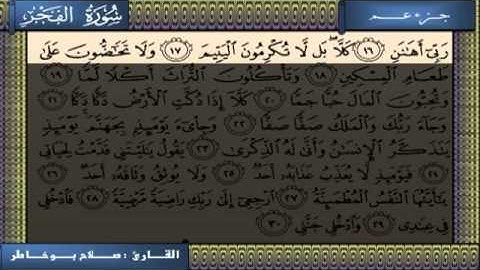 جزء عم
سورة الفجر
رَبِّيٓ أَهَٰنَنِ ١٦ كَلَّاۖ بَل لَّا تُكۡرِمُونَ ٱلۡيَتِيمَ ١٧ وَلَا تَحَٰٓضُّونَ عَلَىٰ
طَعَامِ ٱلۡمِسۡكِينِ ١٨ وَتَأۡكُلُونَ ٱلتُّرَاثَ أَكۡلٗا لَّمّٗا ١٩
وَتُحِبُّونَ ٱلۡمَالَ حُبّٗا جَمّٗا ٢٠ كَلَّآۖ إِذَا دُكَّتِ ٱلۡأَرۡضُ دَكّٗا دَكّٗا ٢١
وَجَآءَ رَبُّكَ وَٱلۡمَلَكُ صَفّٗا صَفّٗا ٢٢ وَجِاْيٓءَ يَوۡمَئِذِۭ بِجَهَنَّمَۚ يَوۡمَئِذٖ
يَتَذَكَّرُ ٱلۡإِنسَٰنُ وَأَنَّىٰ لَهُ ٱلذِّكۡرَىٰ ٢٣ يَقُولُ يَٰلَيۡتَنِي قَدَّمۡتُ لِحَيَاتِي
٢٤ فَيَوۡمَئِذٖ لَّا يُعَذِّبُ عَذَابَهُۥٓ أَحَدٞ ٢٥ وَلَا يُوثِقُ وَثَاقَهُۥٓ أَحَدٞ ٢٦
يَٰٓأَيَّتُهَا ٱلنَّفۡسُ ٱلۡمُطۡمَئِنَّةُ ٢٧ ٱرۡجِعِيٓ إِلَىٰ رَبِّكِ رَاضِيَةٗ مَّرۡضِيَّةٗ ٢٨ فَٱدۡخُلِي
فِي عِبَٰدِي ٢٩ وَٱدۡخُلِي جَنَّتِي ٣٠
القارئ : صلاح بوخاطر